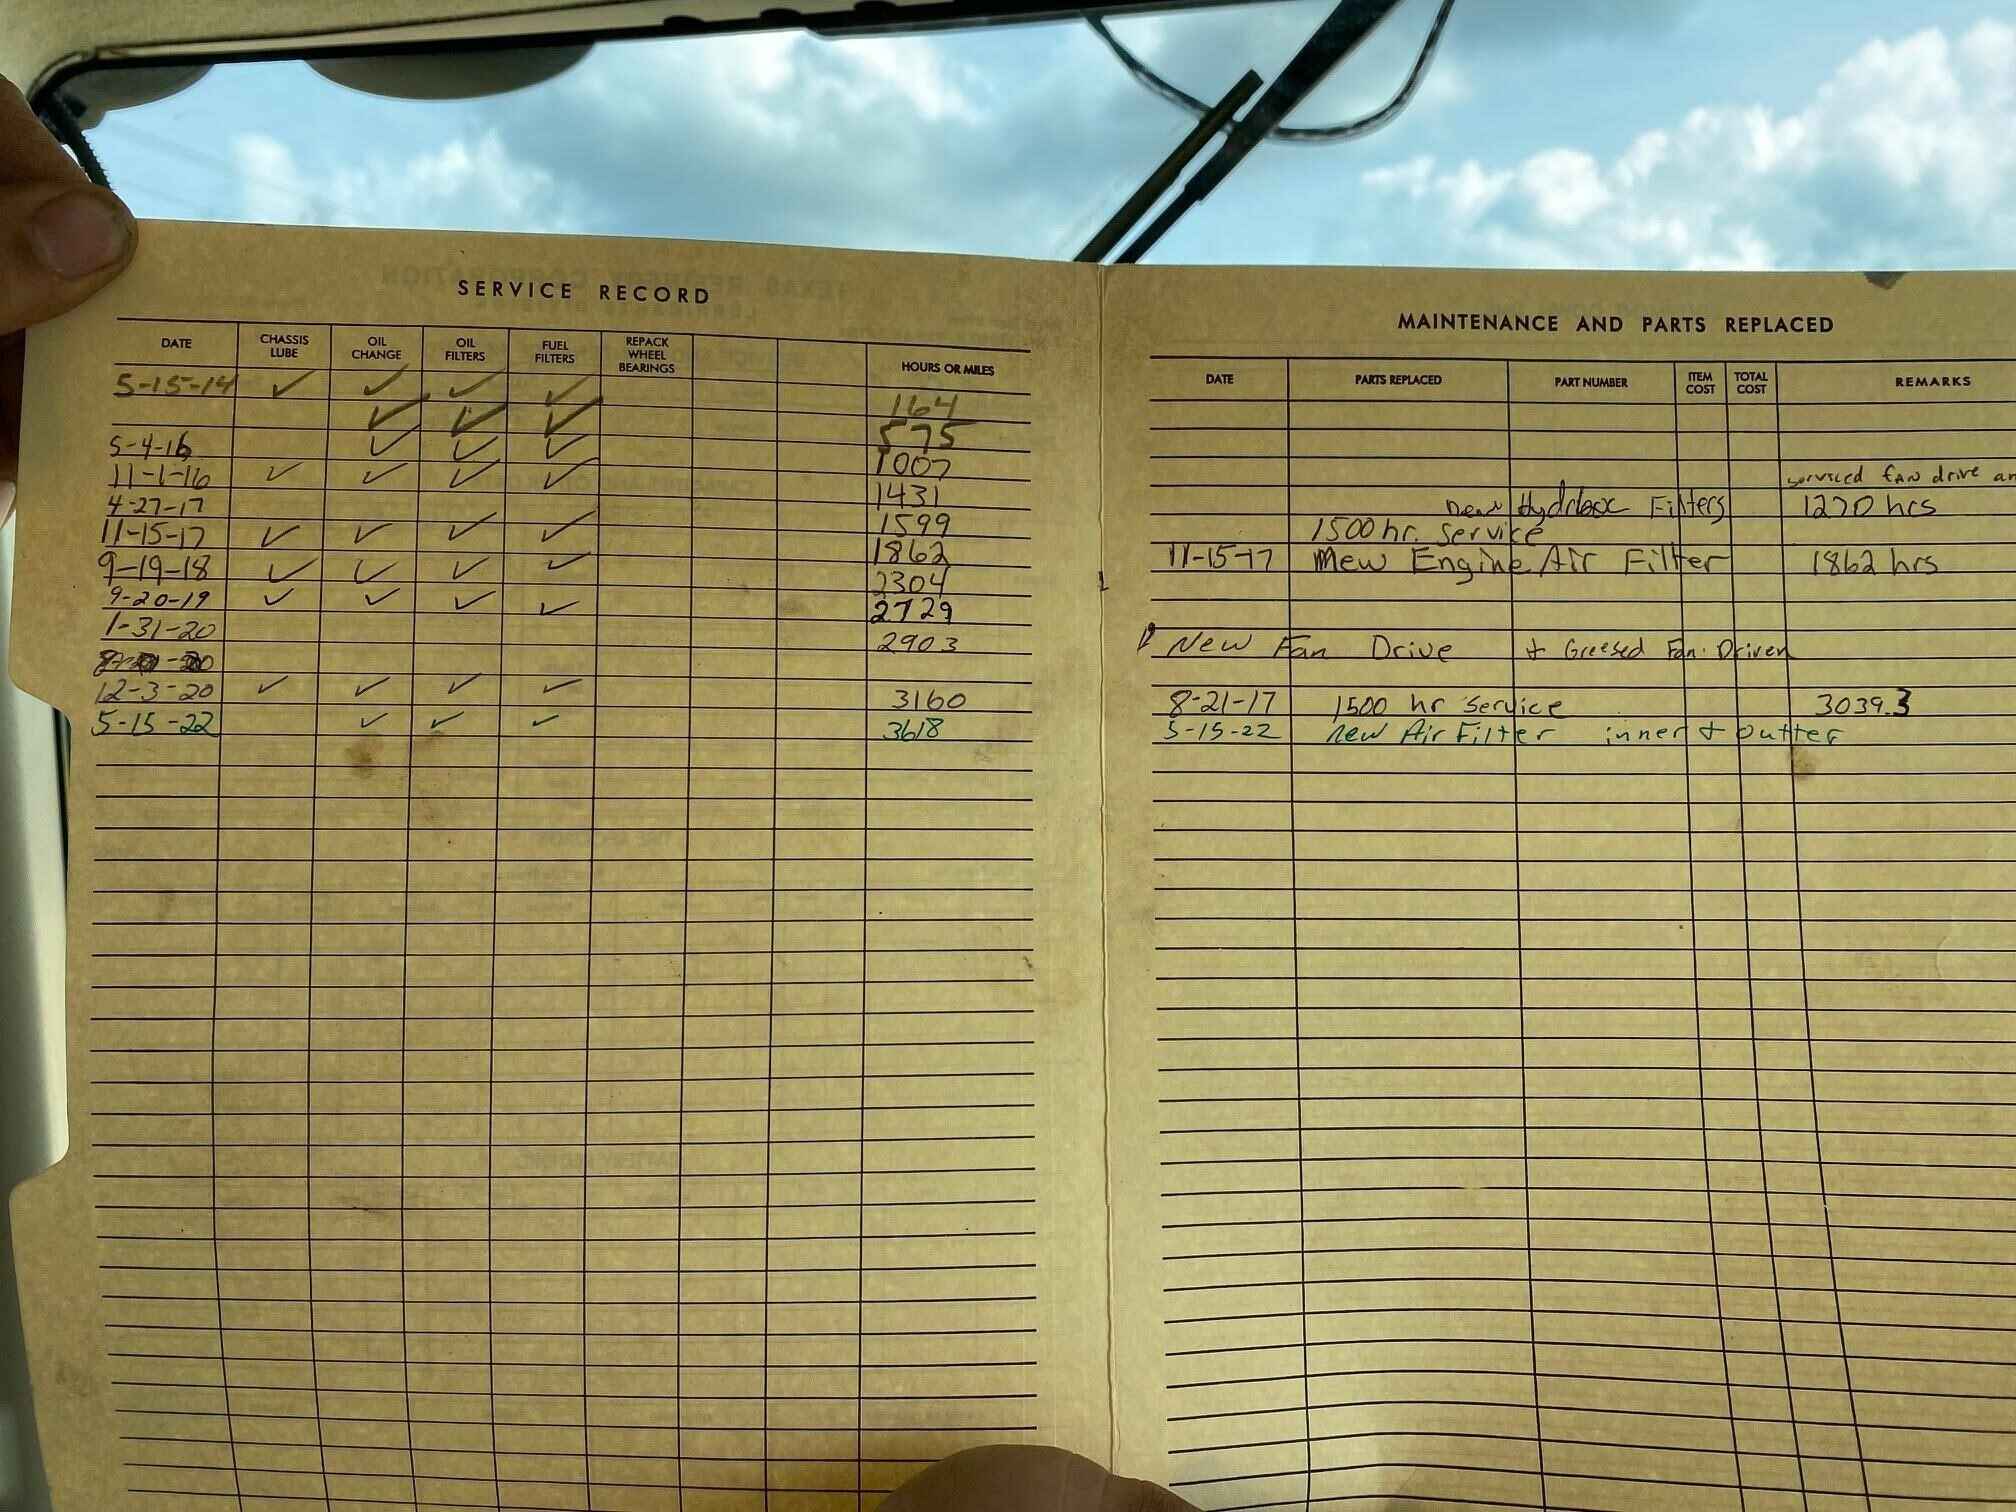 SERVICE RECORD
DATE CHASSIS LUBE OIL CHANGE OIL FILTERS FUEL FILTERS REPACK WHEEL BEARINGS HOURS OR MILES
5-15-14 ✓ ✓ ✓ ✓ 164
✓ ✓ ✓ 575
5-4-16 ✓ ✓ ✓ 1007
11-1-16 ✓ ✓ ✓ ✓ 1431
4-27-17 1599
11-15-17 ✓ ✓ ✓ ✓ 1862
9-19-18 ✓ ✓ ✓ ✓ 2304
9-20-19 ✓ ✓ ✓ ✓ 2729
1-31-20 2903
12-3-20 ✓ ✓ ✓ ✓ 3160
5-15-22 ✓ ✓ ✓ 3618
MAINTENANCE AND PARTS REPLACED
DATE PARTS REPLACED PART NUMBER ITEM COST TOTAL COST REMARKS
serviced fan drive an
new Filters 1270 hrs
1500 hr. service
11-15-17 Mew Engine Air Filter 1862 hrs
New Fan Drive + Greesed Fan Driven
8-21-17 1500 hr service 3039.3
5-15-22 new Air Filter inner + outter